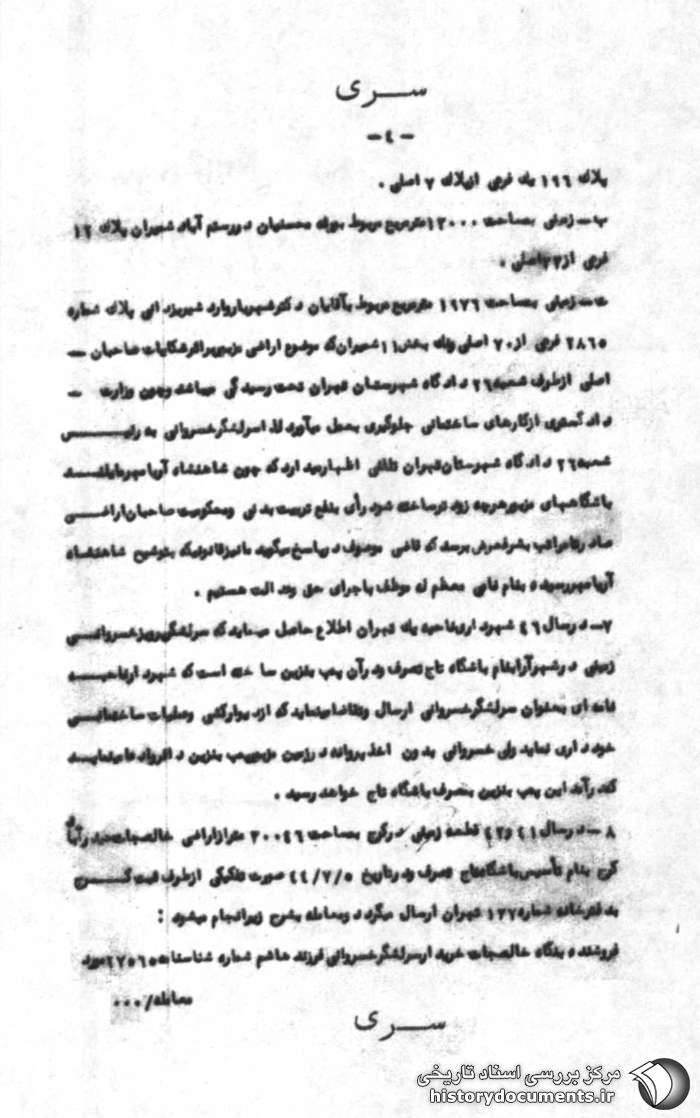 سری
-٤-
پلاک ١٦٦ یک فرعی ازپلاک ٧ اصلی .
ب - زمینی بمساحت ١٢٠٠٠ مترمربع مربوط بورثه محسنیان در رستم آباد شمیران پلاک ١٢
فرعی از ٢٣ اصلی .
ت - زمینی بمساحت ١٩٧٦ مترمربع مربوط بآقایان دکترشهریار وارد شیریزدانی پلاک شماره
٢٨٦٥ فرعی از ٧٠ اصلی بخش ١١ شمیران که موضوع اراضی مزبور براثرشکایات صاحبان -
اصلی ازطرف شعبه ٢٦ دادگاه شهرستان تهران تحت رسیدگی میباشد وچون وزارت -
دادگستری ازکارهای ساختمانی جلوگیری بعمل میآورد لذا سرلشگرخسروانی به رئیس
شعبه ٢٦ دادگاه شهرستان تهران تلفنی اظهارمیدارد که چون شاهنشاه آریامهرمایلند
باشگاههای مزبورهرچه زود ترساخته شود رأی بنفع تربیت بدنی ومحکومیت صاحبان اراضی
صادر تا مراتب بشرفعرض برسد که قاضی موصوف درپاسخ میگوید مانیزقانونیکه بتوشیح شاهنشاه
آریامهررسیده بنام نامی معظم له موظف باجرای حق وعدالت هستیم .
٧- درسال ٤٦ شهرداری ناحیه یک تهران اطلاع حاصل مینماید که سرلشگرپرویزخسروانی
زمینی درشهرآرا بنام باشگاه تاج تصرف ودرآن پمپ بنزین ساخته است که شهردارناحیه
نامه ای بعنوان سرلشگرخسروانی ارسال وتقاضا مینماید که ازدیوارکشی وعملیات ساختمانی
خودداری نماید ولی خسروانی بدون اخذ پروانه درزمین مزبورپمپ بنزین دائر وادعا مینماید
که درآمد این پمپ بنزین بمصرف باشگاه تاج خواهد رسید .
٨- درسال ٤١ و ٤٢ قطعه زمینی درکرج بمساحت ٢٠٠٤٦ متر ازاراضی خالصجات حیدرآباد
کرج بنام تأسیس باشگاه تاج تصرف ودرتاریخ ٤٤/٧/٥ صورت تفکیکی ازطرف ثبت کرج
بدفترخانه شماره ١٢٧ تهران ارسال میگردد ومعامله بشرح زیرانجام میشود :
فروشنده بنگاه خالصجات خریدار سرلشگرخسروانی فرزند هاشم شماره شناسنامه ٢٧٥٦٥ مورد
معامله/٠٠٠
سری
مرکز بررسی اسناد تاریخی
historydocuments.ir